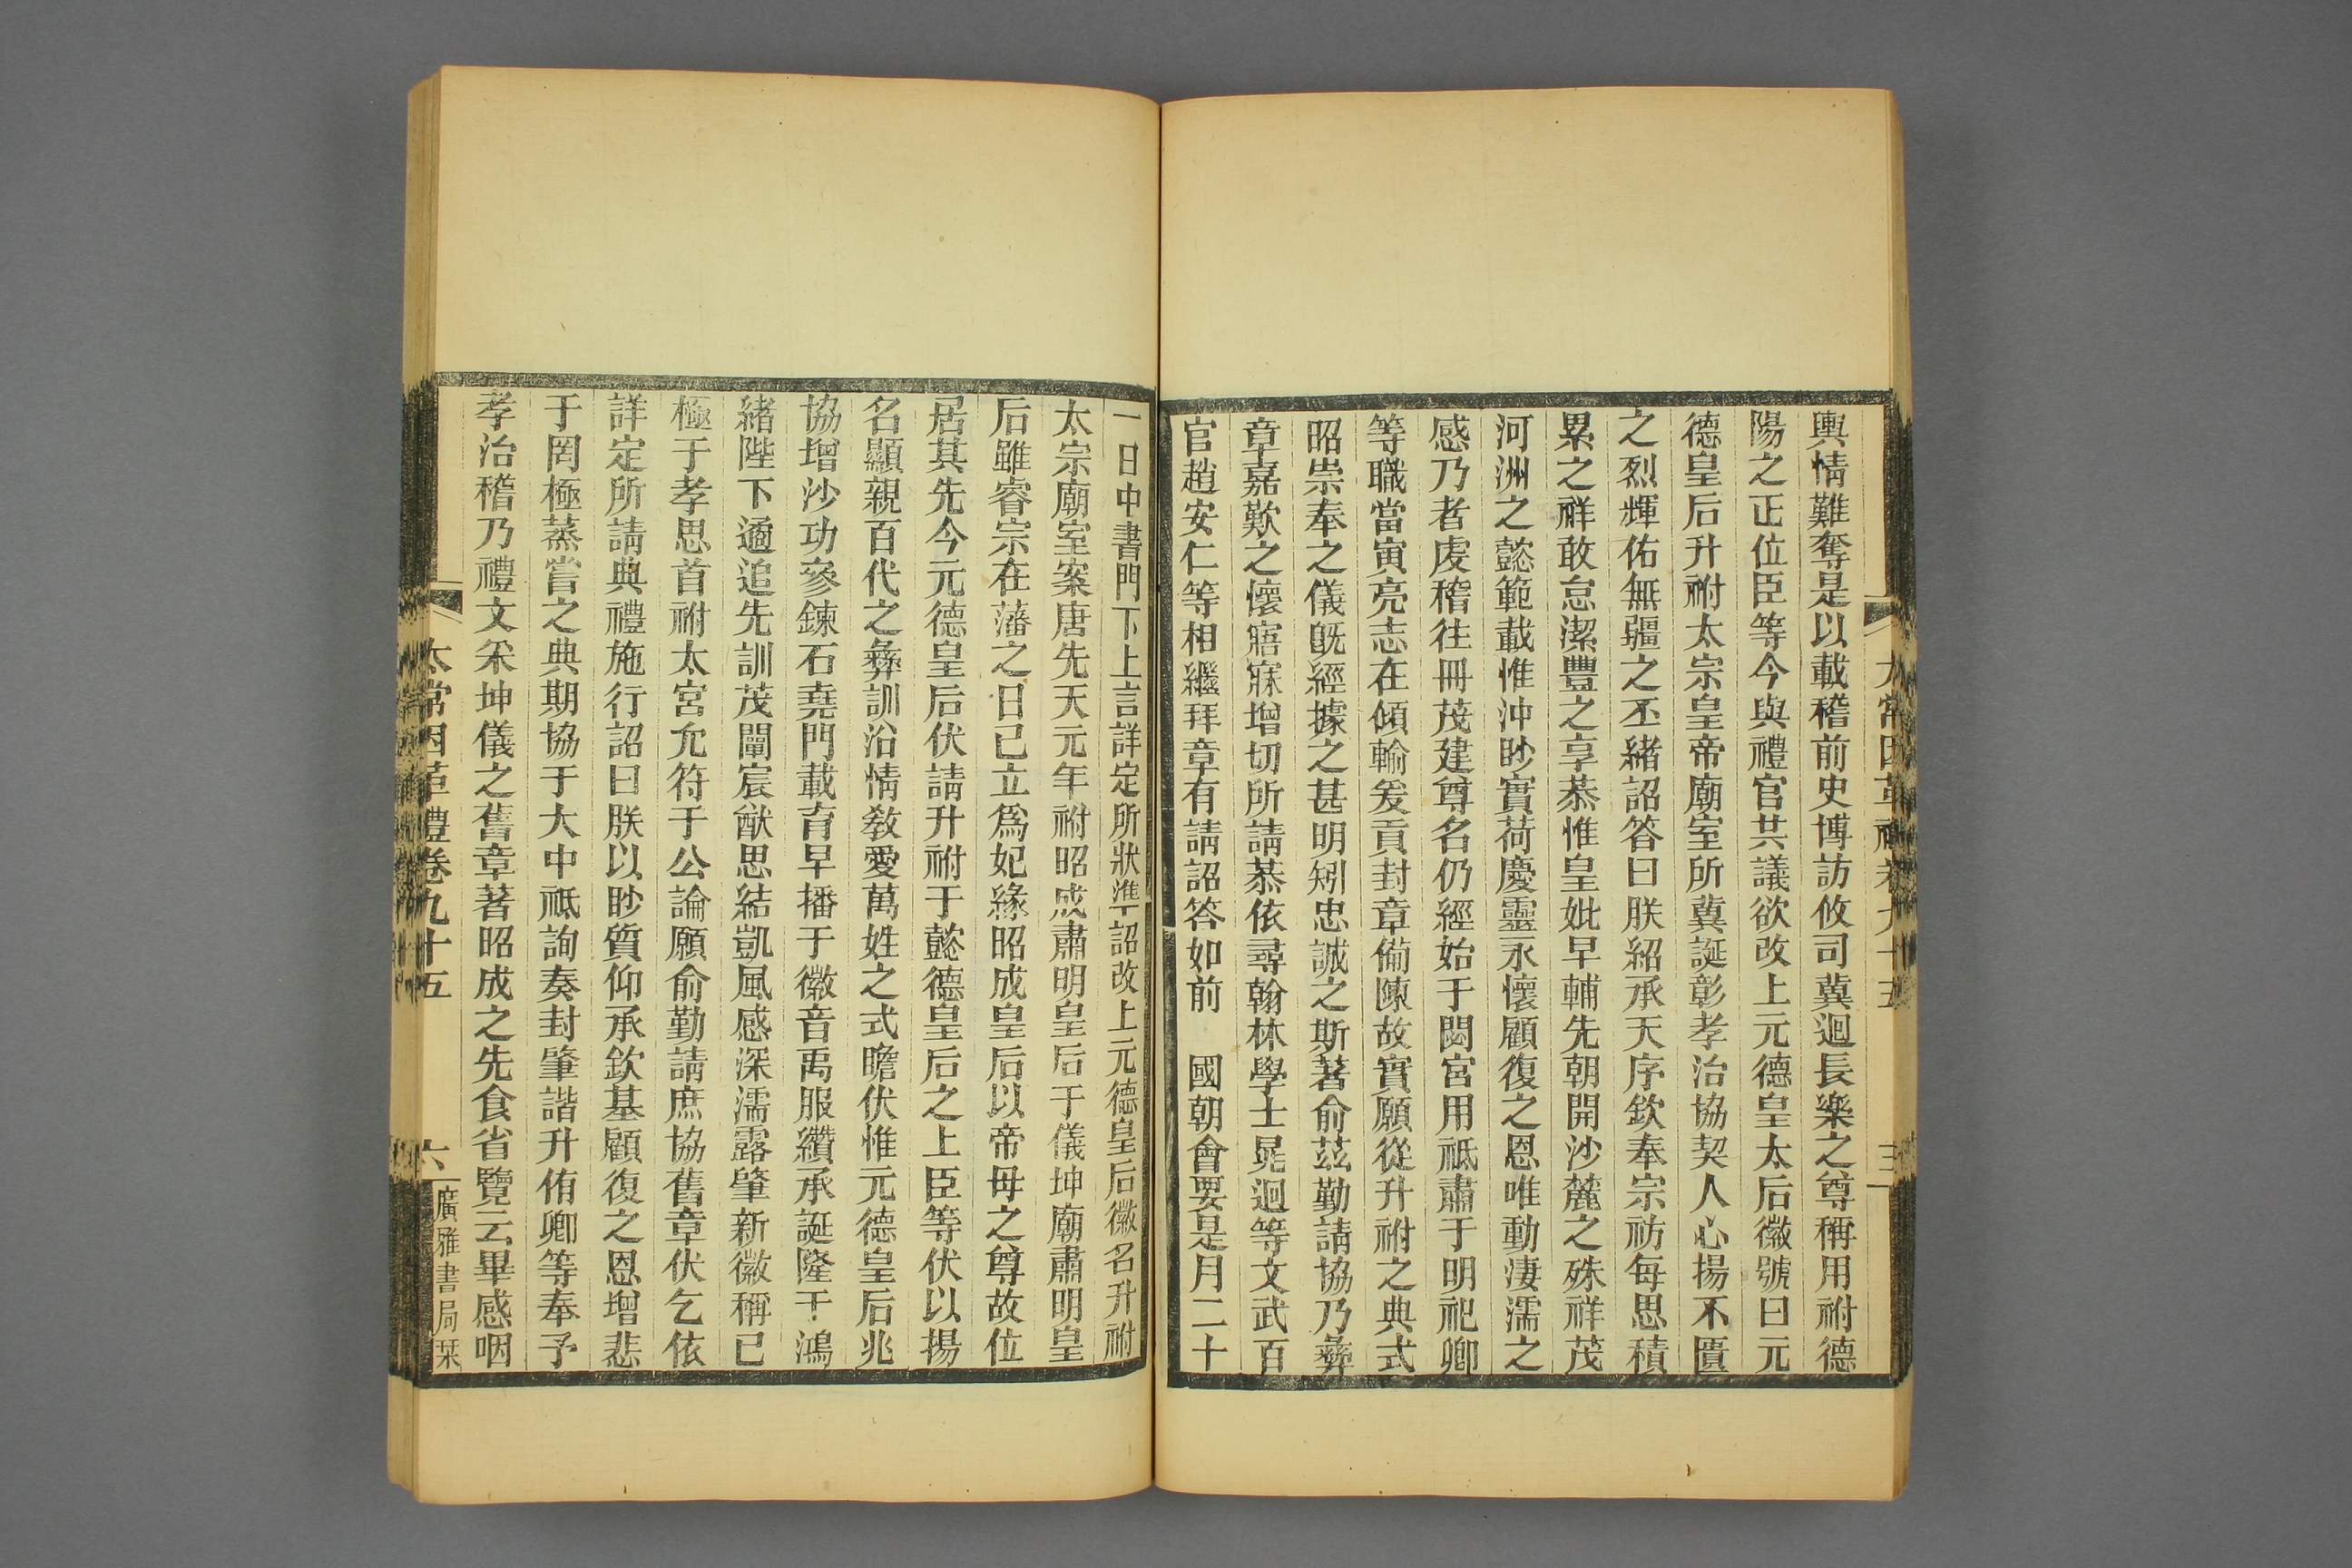 輿情難奪是以載稽前史博訪攸司冀迴長樂之尊稱用祔德
陽之正位臣等今與禮官共議欲改上元德皇太后徽號曰元
德皇后升祔太宗皇帝廟室所冀誕彰孝治協契人心揚不匱
之烈輝佑無疆之丕緒詔答曰朕紹承天序欽奉宗祊每思積
累之祥敢怠潔豐之享恭惟皇妣早輔先朝開沙麓之殊祥茂
河洲之懿範載惟沖眇實荷慶靈永懷顧復之恩唯動淒濡之
感乃者虔稽往冊茂建尊名仍經始于閟宮用祗肅于明祀卿
等職當寅亮志在傾輸爰貢封章備陳故實願從升祔之典式
昭崇奉之儀既經據之甚明矧忠誠之斯著俞茲勤請協乃彝
章嘉歎之懷寤寐增切所請恭依尋翰林學士晁迥等文武百
官趙安仁等相繼拜章有請詔答如前　國朝會要是月二十
一日中書門下上言詳定所狀準詔改上元德皇后徽名升祔
太宗廟室案唐先天元年祔昭成肅明皇后于儀坤廟肅明皇
后雖睿宗在藩之日已立為妃緣昭成皇后以帝母之尊故位
居其先今元德皇后伏請升祔于懿德皇后之上臣等伏以揚
名顯親百代之彝訓沿情教愛萬姓之式瞻伏惟元德皇后兆
協增沙功參鍊石堯門載育早播于徽音禹服纘承誕隆于鴻
緒陛下遹追先訓茂闡宸猷思結凱風感深濡露肇新徽稱已
極于孝思首祔太宮允符于公論願俞勤請庶協舊章伏乞依
詳定所請典禮施行詔曰朕以眇質仰承欽基顧復之恩增悲
于罔極蒸嘗之典期協于大中祗詢奏封肇諧升侑卿等奉予
孝治稽乃禮文采坤儀之舊章著昭成之先食省覽云畢感咽
太常因革禮卷九十五
六
廣雅書局栞